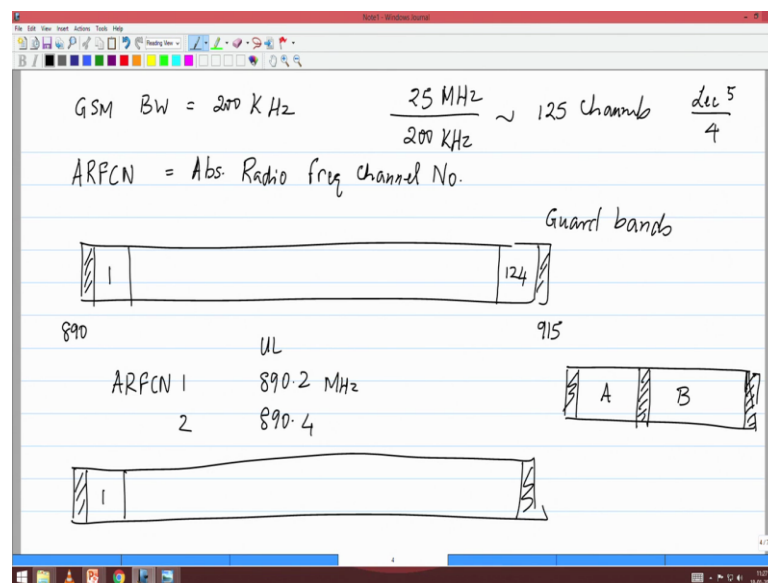 Note1 - Windows Journal
File Edit View Insert Actions Tools Help
Reading View
B I
GSM BW = 200 KHz 25 MHz / 200 KHz ~ 125 Channels Lec 5 / 4
ARFCN = Abs. Radio freq Channel No.
Guard bands
1 124
890 915
UL
ARFCN 1 890.2 MHz
2 890.4
A B
1
4
11:27